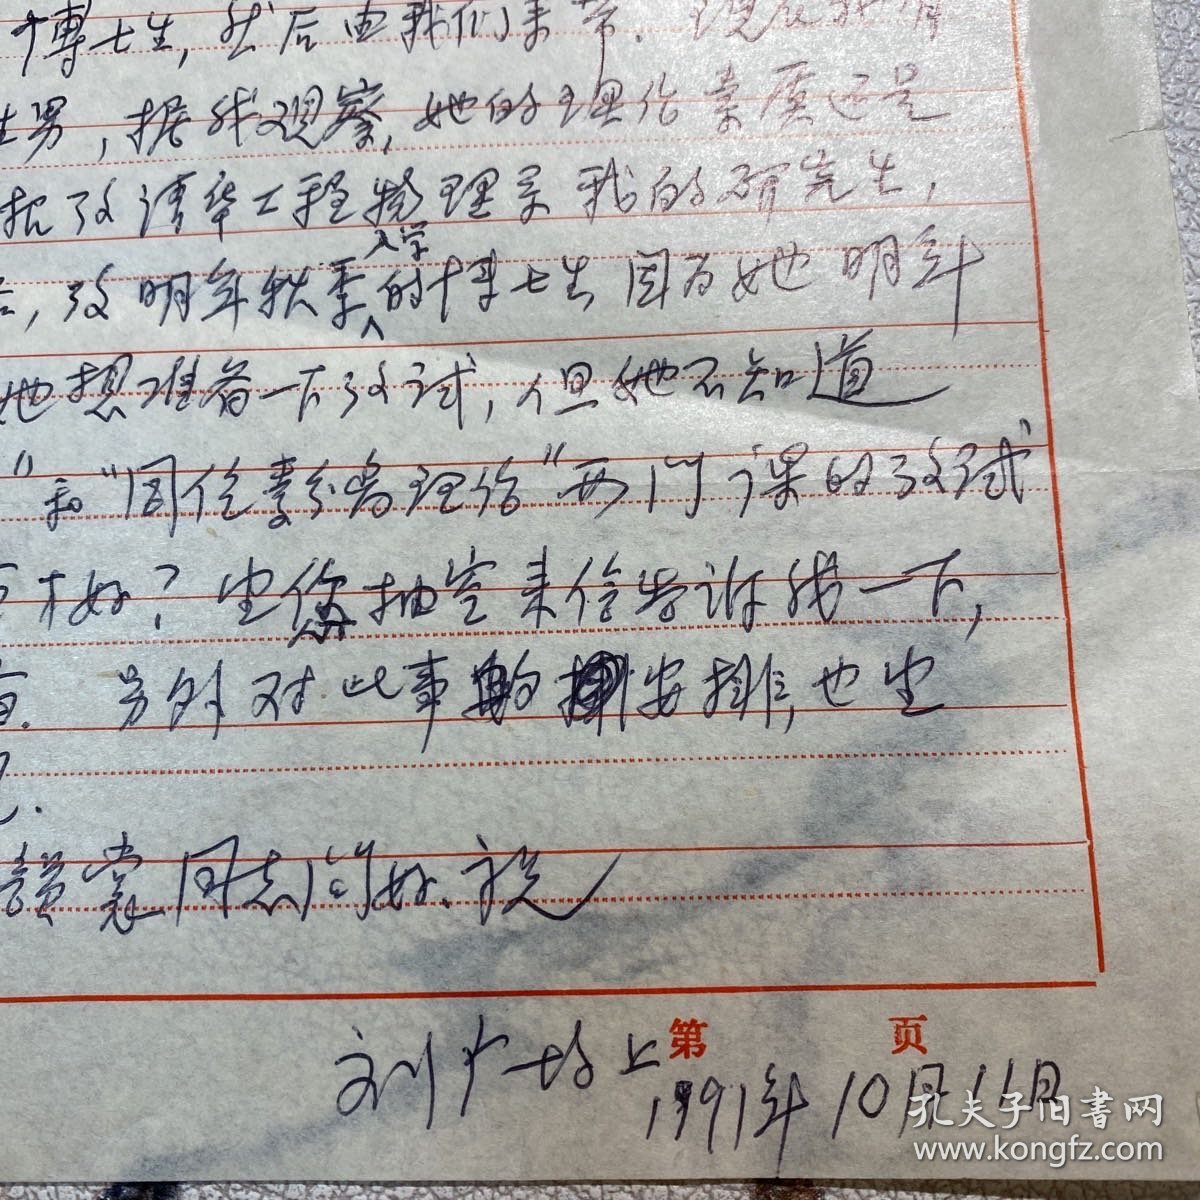 博士生，然后由我们来带．现在我有
生男，据我观察，她的理论素质还是
报攷清华工程物理系我的研究生，
，攷明年秋季入学的博士生，因为她明年
她想准备一下攷试，但她不知道
”和“固体素分离理论”两门课的攷试
好？望您抽空来信告诉我一下，
另外对此事的安排，也望
同志问好．祝
刘广均上
第 页
1991年10月16日
孔夫子旧书网
www.kongfz.com